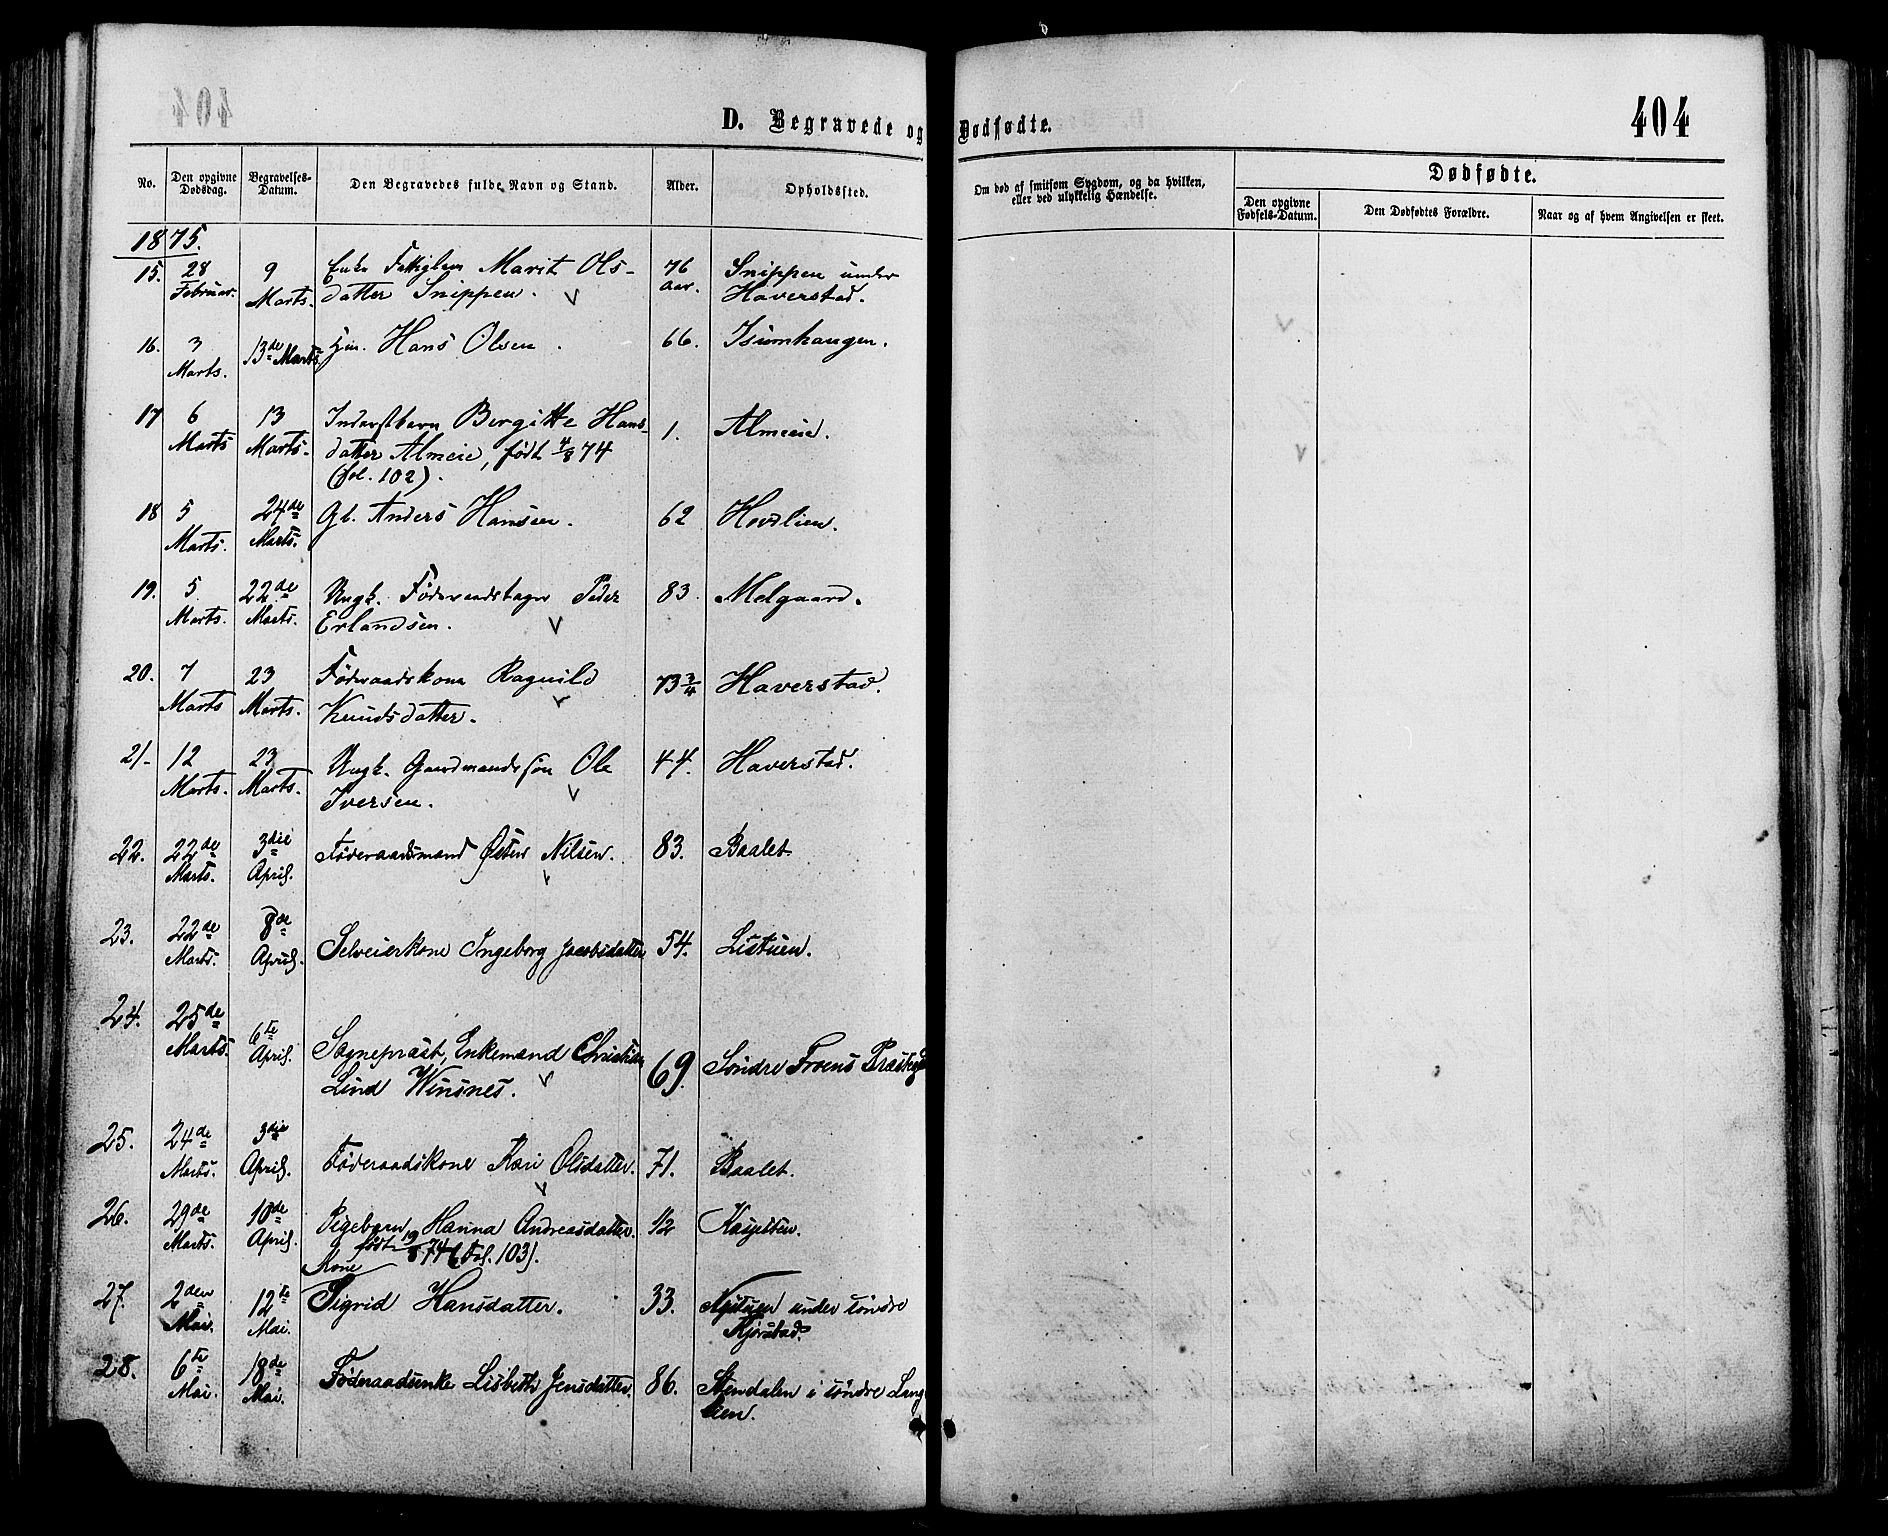 404
D. Begravede og Dødfødte.
404
No.
Den opgivne Dødsdag.
Begravelses-Datum.
Den Begravedes fulde Navn og Stand.
Alder.
Opholdssted.
Om død af smitsom Sygdom, og da hvilken, eller ved ulykkelig Hændelse.
Dødfødte.
Den opgivne Fødsels-Datum.
Den Dødfødtes Forældre.
Naar og af hvem Angivelsen er skeet.
1875.
15. 28 Februar. 9 Marts. Enke Fattiglem Marit Ols- 76 aar. Snippen under
datter Snippen. Haverstad.
16. 3 Marts. 13de Marts. Hans Olsen. 66. Isumhaugen.
17 6 Marts 13 Marts. Inderstbarn Bergitte Hans- 1. Almeie.
datter Almeie, født 4/8 74
(fol. 102).
18 5 Marts. 24de Marts. Gl. Anders Hansen. 62 Hovdlien.
19. 5 Marts. 22de Marts. Ungk. Føderaadstager Peder 83. Melgaard.
Erlandsen.
20. 7 Marts 23 Marts. Føderaadskone Ragnild 73 3/4 Haverstad.
Knudsdatter.
21- 12 Marts. 23 Marts. Ungk. Gaardmandssøn Ole 44. Haverstad.
Iversen.
22. 22de Marts. 3die April. Føderaadsmand Østen Nilsen. 83. Baalet.
23. 22de Marts. 8de April. Selveierkone Ingeborg Jacobsdatter 54. Listuen.
24. 25de Marts. 6te April. Sognepræst, Enkemand Christian 69. Søndre Froens Præstegd
Lind Winsnes.
25. 24de Marts. 3die April. Føderaadskone Kari Olsdatter. 71. Baalet.
26. 29de Marts. 10de April. Pigebarn Hanna Andreasdatter. 1/2
født 19/8 74 (Fol. 103).
Kone
27. 2den Mai. 12te Mai. Sigrid Hansdatter. 33. Nystuen under søndre
Kjørstad.
28. 6te Mai. 18de Mai. Føderaadsenke Lisbeth Jensdatter 86. Stendalen i søndre Lang
lien.